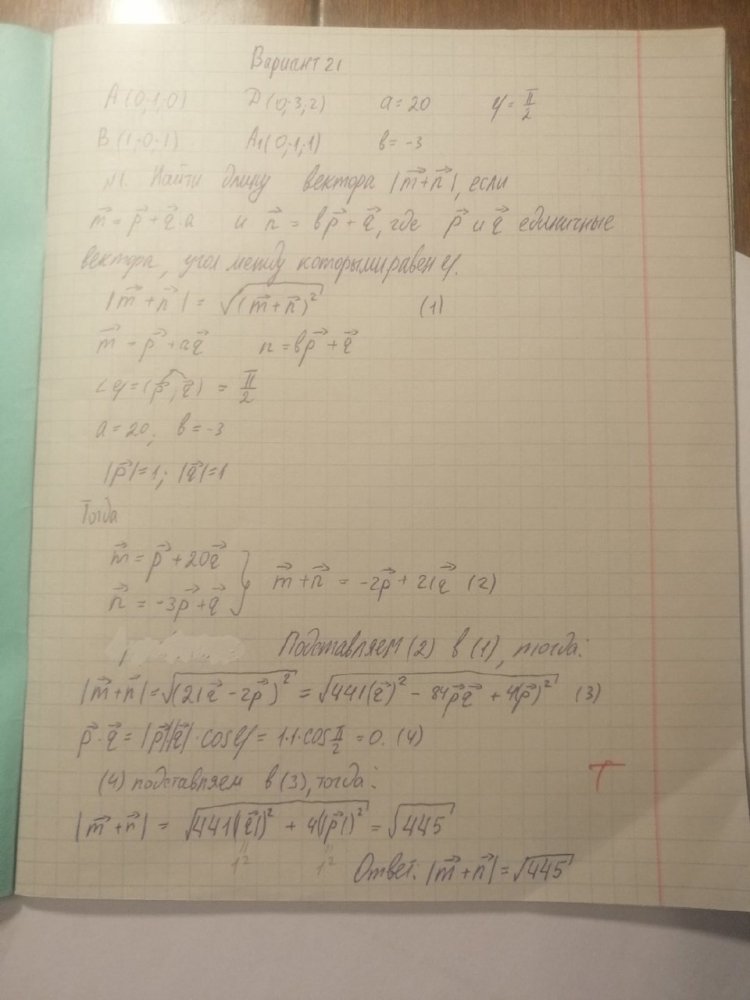 Вариант 21
A (0;1;0) D (0;3;2) a = 20 φ = π/2
B (1;0;1) A₁(0;1;1) в = -3
№1. Найти длину вектора |m⃗+n⃗|, если
m⃗ = p⃗ + q⃗·a и n⃗ = вp⃗ + q⃗, где p⃗ и q⃗ единичные
вектора, угол между которыми равен φ.
|m⃗ + n⃗| = √(m⃗ + n⃗)² (1)
m⃗ = p⃗ + aq⃗ n = вp⃗ + q⃗
∠φ = (p⃗, q⃗) = π/2
a = 20; в = -3
|p⃗| = 1; |q⃗| = 1
Тогда
m⃗ = p⃗ + 20q⃗
n⃗ = -3p⃗ + q⃗ } m⃗ + n⃗ = -2p⃗ + 21q⃗ (2)
Подставляем (2) в (1), тогда:
|m⃗ + n⃗| = √(21q⃗ - 2p⃗)² = √441(q⃗)² - 84p⃗q⃗ + 4(p⃗)² (3)
p⃗ · q⃗ = |p⃗||q⃗| · cosφ = 1·1·cos π/2 = 0. (4)
(4) подставляем в (3), тогда:
|m⃗ + n⃗| = √441(|q⃗|)² + 4(|p⃗|)² = √445
1² 1²
Ответ: |m⃗ + n⃗| = √445